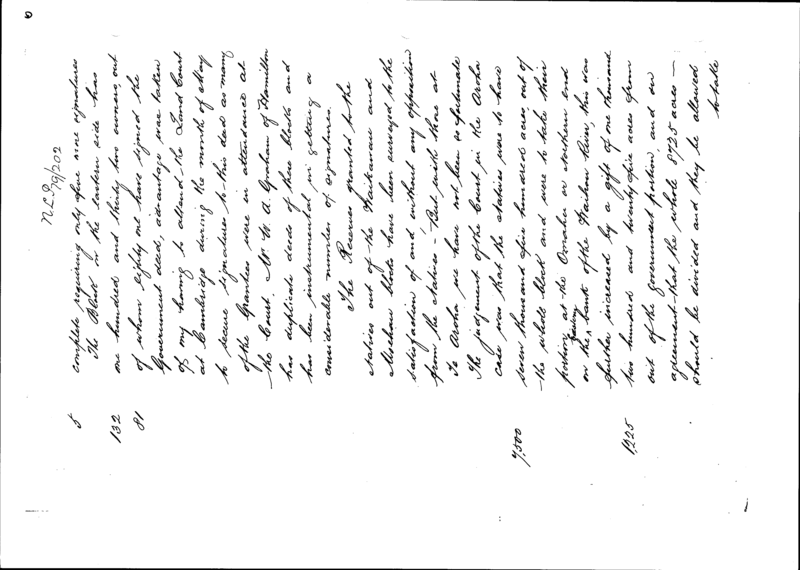 6
N.L.P 79/202
5 complete requiring only five more signatures
The Block on the eastern side has
132 one hundred and thirty two owners, out
81 of whom eighty one have signed the
Government deed, advantage was taken
of my having to attend the Land Court
at Cambridge during the month of May
to secure signatures to this deed as many
of the Grantees were in attendance at
the Court. Mr. W. A. Graham of Hamilton
has duplicate deeds of these blocks and
has been instrumental in getting a
considerable number of signatures.
The Reserves granted to the
Natives out of the and
blocks have been surveyed to the
satisfaction of and without any opposition
from the Natives – But with those at
Te Aroha we have not been so fortunate
The judgment of the Court in the Aroha
case was that the natives were to have
7,500 seven thousand five hundred acres, out of
the whole block and were to take their
portion at the Omahu or northern end
on the banks of the Waihou River, this was
further increased by a gift of one thousand
1,225 two hundred and twenty five acres from
out of the government portion, and an
agreement that the whole 8725 acres —
should be divided and they be allowed
to take